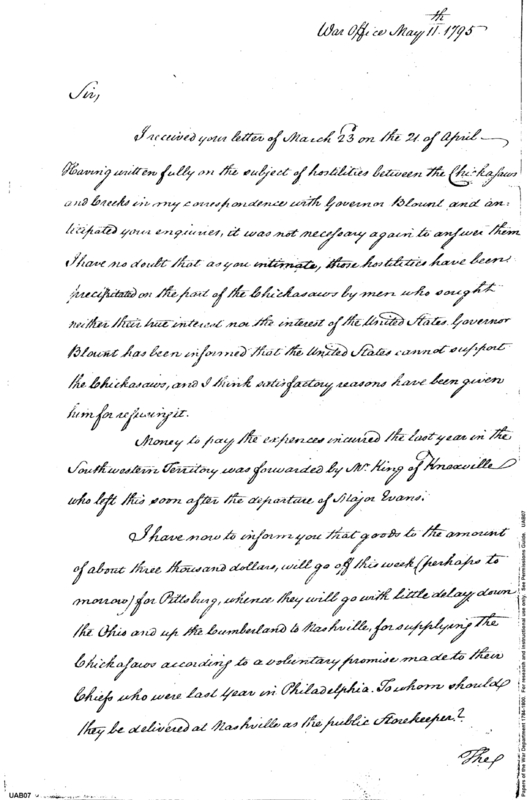 War Office May 11th 1795
Sir,
I received your letter of March 23d on the 21 of April
Having written fully on the subject of hostilities between the Chickasaws
and Creeks in my correspondence with Governor Blount and an-
ticipated your enquiries, it was not necessary again to answer them
I have no doubt that as you intimate, those hostilities have been
precipitated on the part of the Chickasaws by men who sought
neither their true interest nor the interest of the United States. Governor
Blount has been informed that the United States cannot support
the Chickasaws, and I think satisfactory reasons have been given
him for refusing it.
Money to pay the expences incurred the last year in the
Southwestern Territory was forwarded by Mr. King of Knoxville
who left this soon after the departure of Major Evans.
I have now to inform you that goods to the amount
of about three thousand dollars, will go off this week (perhaps to
morrow) for Pittsburg, whence they will go with little delay down
the Ohio and up the Cumberland to Nashville, for supplying the
Chickasaws according to a voluntary promise made to their
Chiefs who were last year in Philadelphia. To whom should
they be delivered at Nashville as the public Storekeeper?
The
UAB07
Papers of the War Department 1784-1800. For research and instructional use only. See Permissions Guide. UAB07